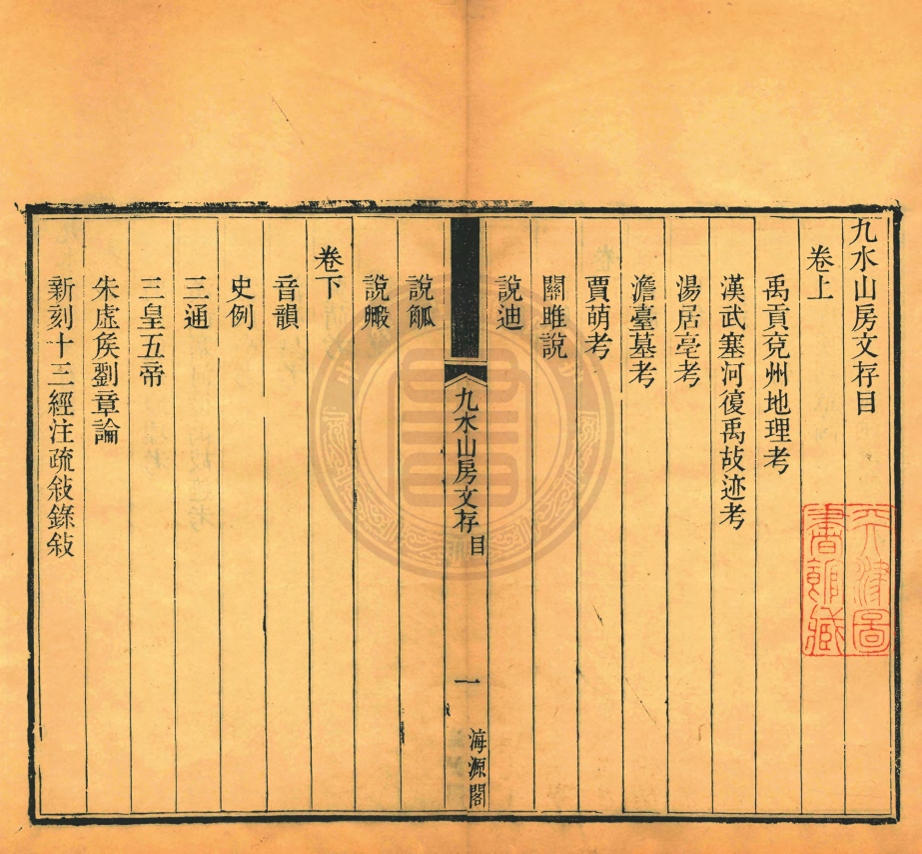 九水山房文存目
卷上
禹貢兗州地理考
漢武塞河復禹故迹考
湯居亳考
澹臺墓考
賈萌考
關雎說
說迪
九水山房文存
目
一
海源閣
說觚
說毈
卷下
音韻
史例
三通
三皇五帝
朱虛矦劉章論
新刻十三經注疏敍錄敍
天津圖
書館藏